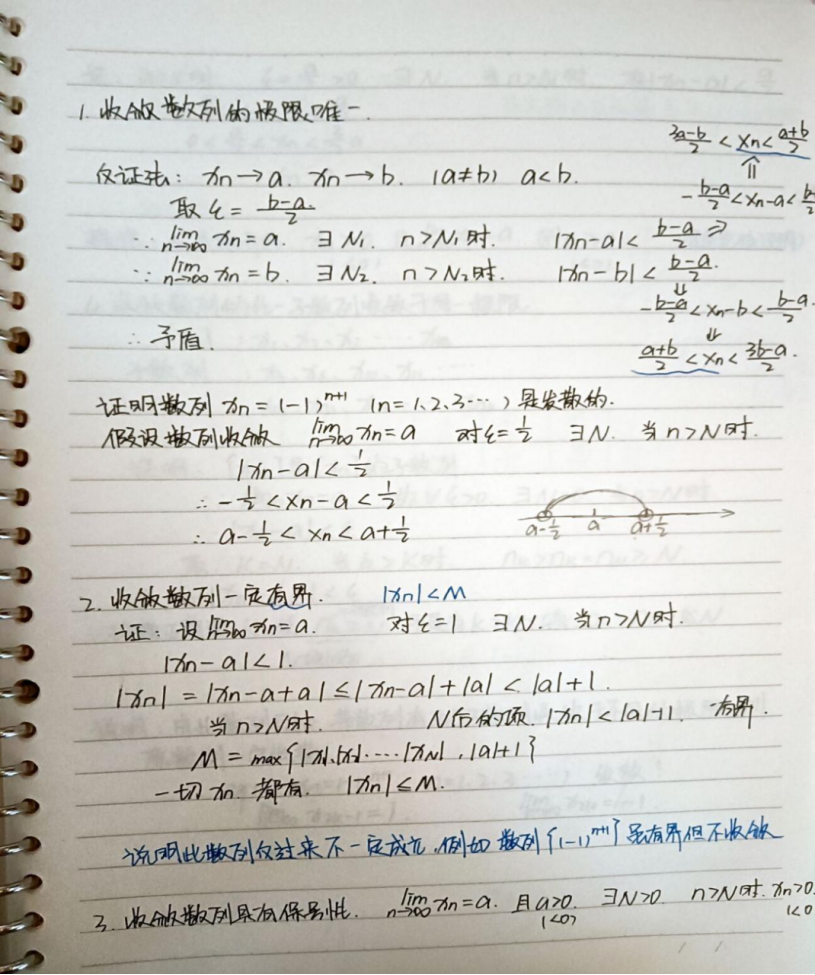 1. 收敛数列的极限唯一.
反证法: xn→a. xn→b. (a≠b) a<b.
取ε=(b-a)/2.
∵ lim n→∞ xn=a. ∃N₁. n>N₁时. |xn-a|<(b-a)/2 ⇒
-(b-a)/2<xn-a<(b-a)/2
⇑
(3a-b)/2<xn<(a+b)/2
∵ lim n→∞ xn=b. ∃N₂. n>N₂时. |xn-b|<(b-a)/2.
⇓
-(b-a)/2<xn-b<(b-a)/2.
⇓
(a+b)/2<xn<(3b-a)/2.
∴矛盾.
证明数列 xn=(-1)ⁿ⁺¹ (n=1、2、3…) 是发散的.
假设数列收敛 lim n→∞ xn=a 对ε=1/2 ∃N. 当n>N时.
|xn-a|<1/2
∴ -1/2<xn-a<1/2
∴ a-1/2<xn<a+1/2
a-1/2 a a+1/2
2. 收敛数列一定有界. |xn|<M
证: 设 lim n→∞ xn=a. 对ε=1 ∃N. 当n>N时.
|xn-a|<1.
|xn|=|xn-a+a|≤|xn-a|+|a|<|a|+1.
当n>N时. N后的项. |xn|<|a|+1. 有界.
M=max{|x₁|.|x₂|.…|xN|,|a|+1}
一切xn. 都有. |xn|≤M.
说明此数列反过来不一定成立,例如 数列{(-1)ⁿ⁺¹}虽有界但不收敛
3. 收敛数列具有保号性. lim n→∞ xn=a. 且a>0. ∃N>0. n>N时. xn>0.
(<0) (<0